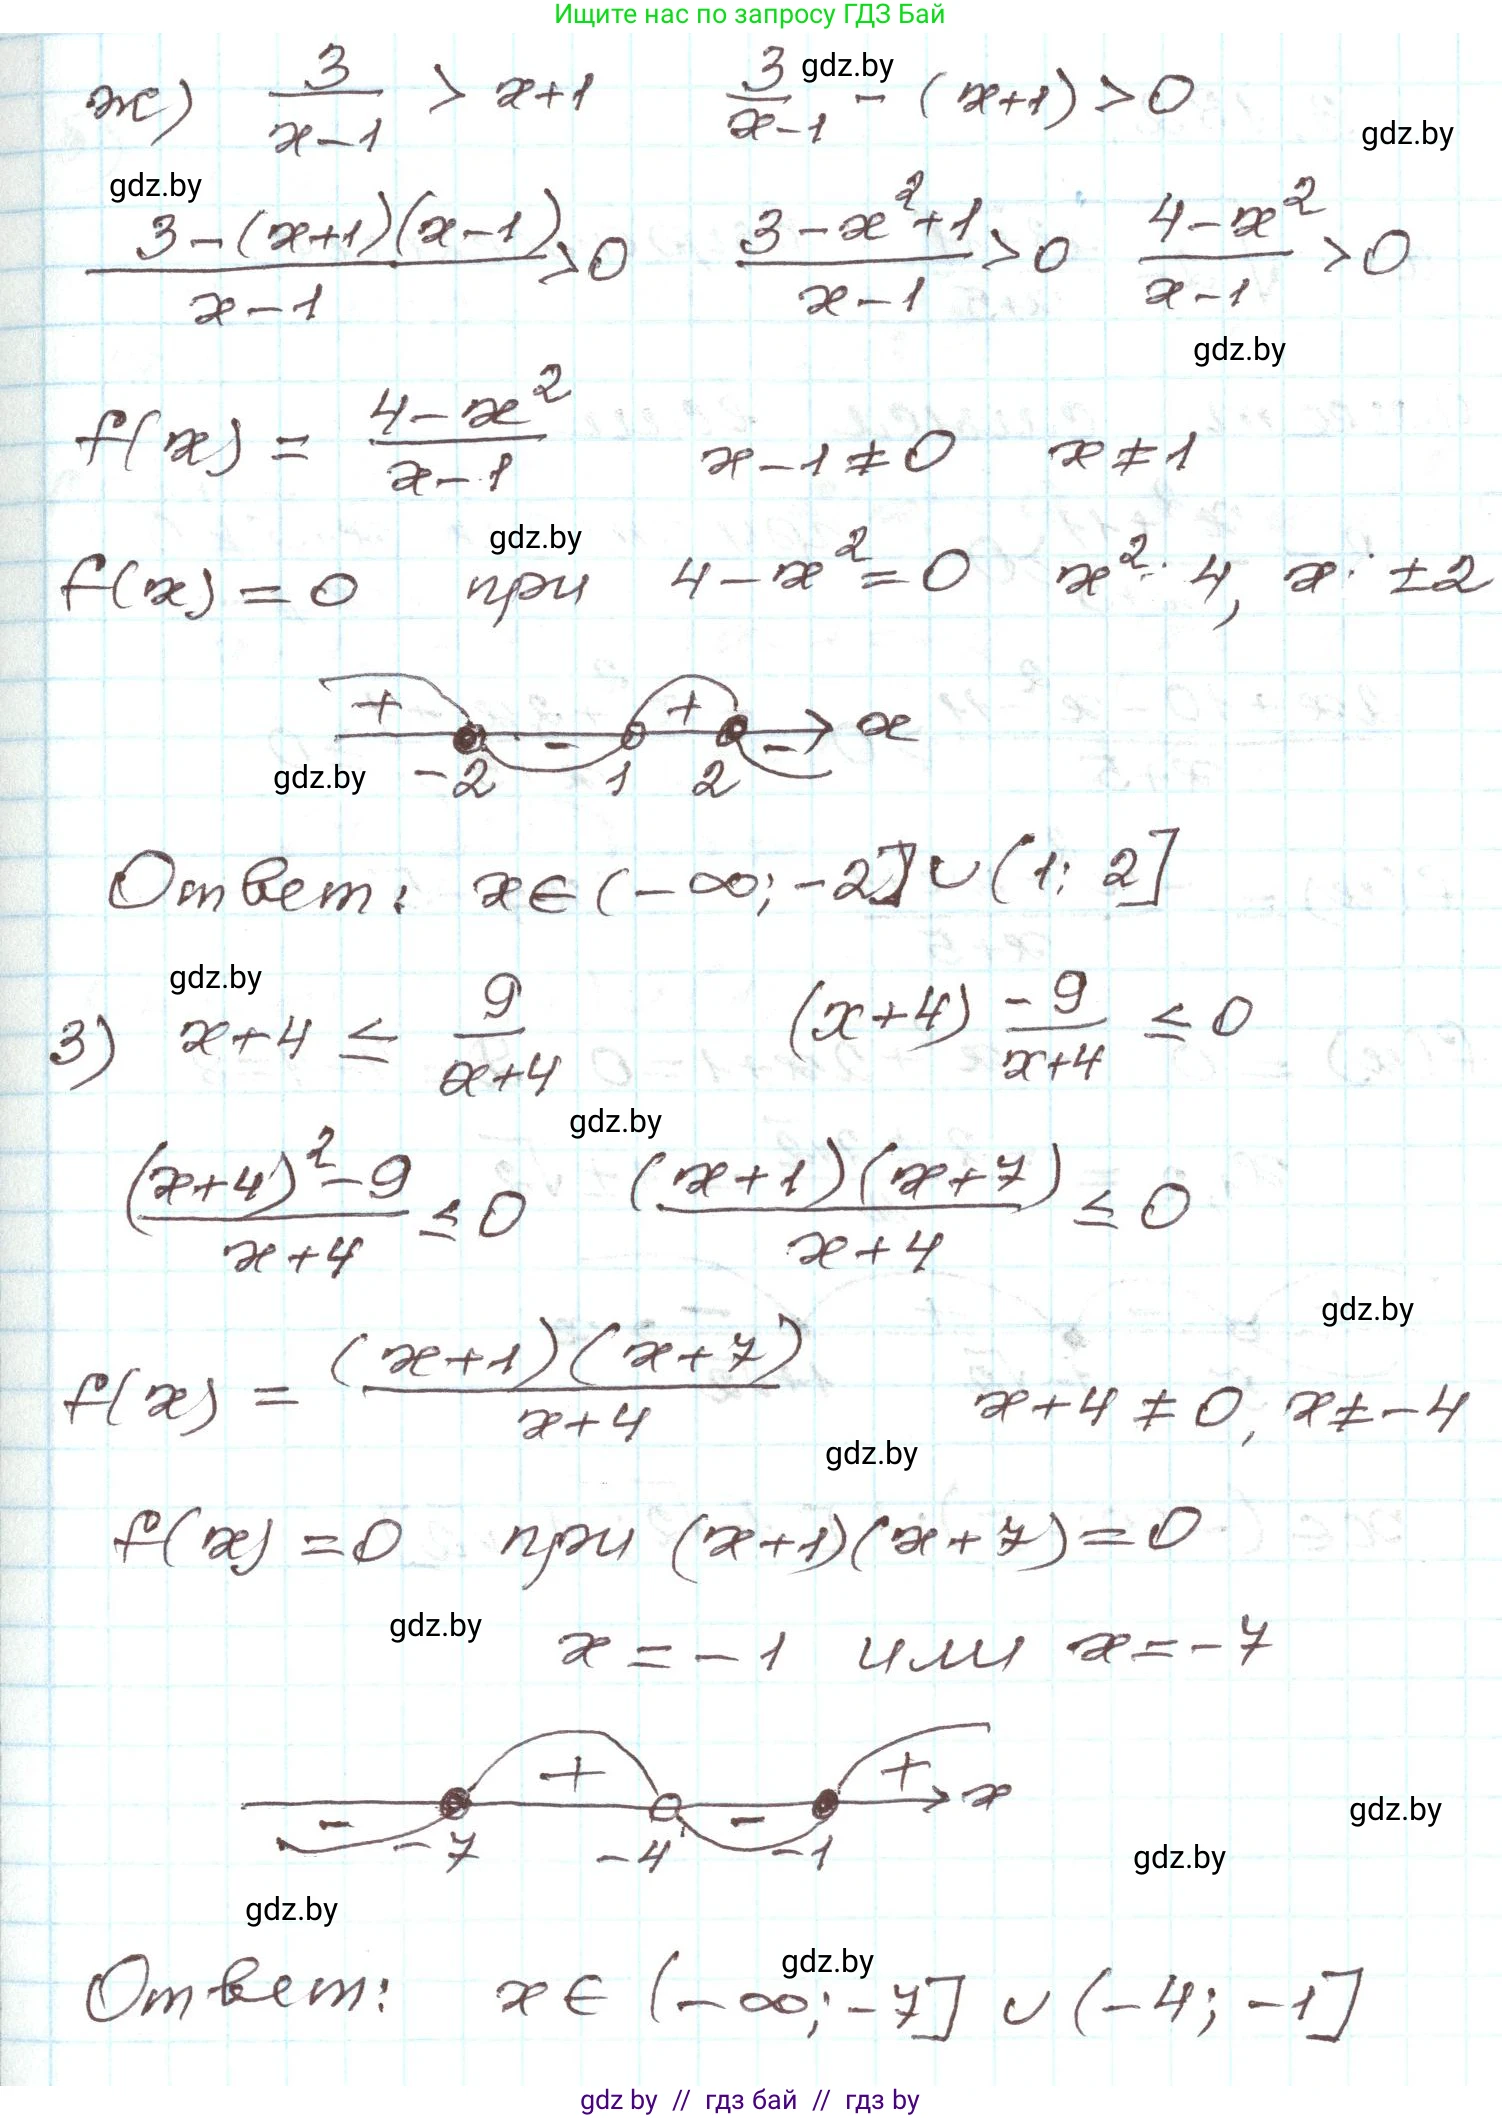 Ищите нас по запросу ГДЗ Бай
ж) 3/(x-1) > x+1   3/(x-1) - (x+1) > 0
gdz.by
gdz.by
gdz.by
(3-(x+1)(x-1))/(x-1) > 0   (3-x²+1)/(x-1) > 0   (4-x²)/(x-1) > 0
gdz.by
f(x) = (4-x²)/(x-1)   x-1≠0   x≠1
gdz.by
f(x) = 0 при 4-x²=0   x²= 4, x= ±2
+ - + - x
gdz.by
-2 1 2
Ответ: x∈(-∞; -2]∪(1; 2]
gdz.by
з) x+4 ≤ 9/(x+4)   (x+4) -9/(x+4) ≤ 0
gdz.by
((x+4)²-9)/(x+4) ≤ 0   ((x+1)(x+7))/(x+4) ≤ 0
gdz.by
f(x) = ((x+1)(x+7))/(x+4)   x+4 ≠ 0, x≠-4
gdz.by
f(x) = 0 при (x+1)(x+7)=0
gdz.by
x = -1 или x = -7
- + - + x
gdz.by
-7 -4 -1
gdz.by
gdz.by
gdz.by
Ответ: x∈ (-∞; -7] ∪ (-4; -1]
gdz by // гдз бай // гдз by